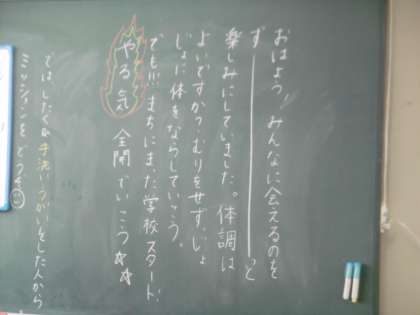 おはよう!みんなに会えるのを
ず――――――――っと
楽しみにしていました。体調は
よいですか?むりをせず、じょ
じょに体をならしていこう。
でも!!まちにまった学校スタート!
やる気 全開でいこう☆☆
ではしたくか手洗いうがいをした人から
ミッションをどうぞ